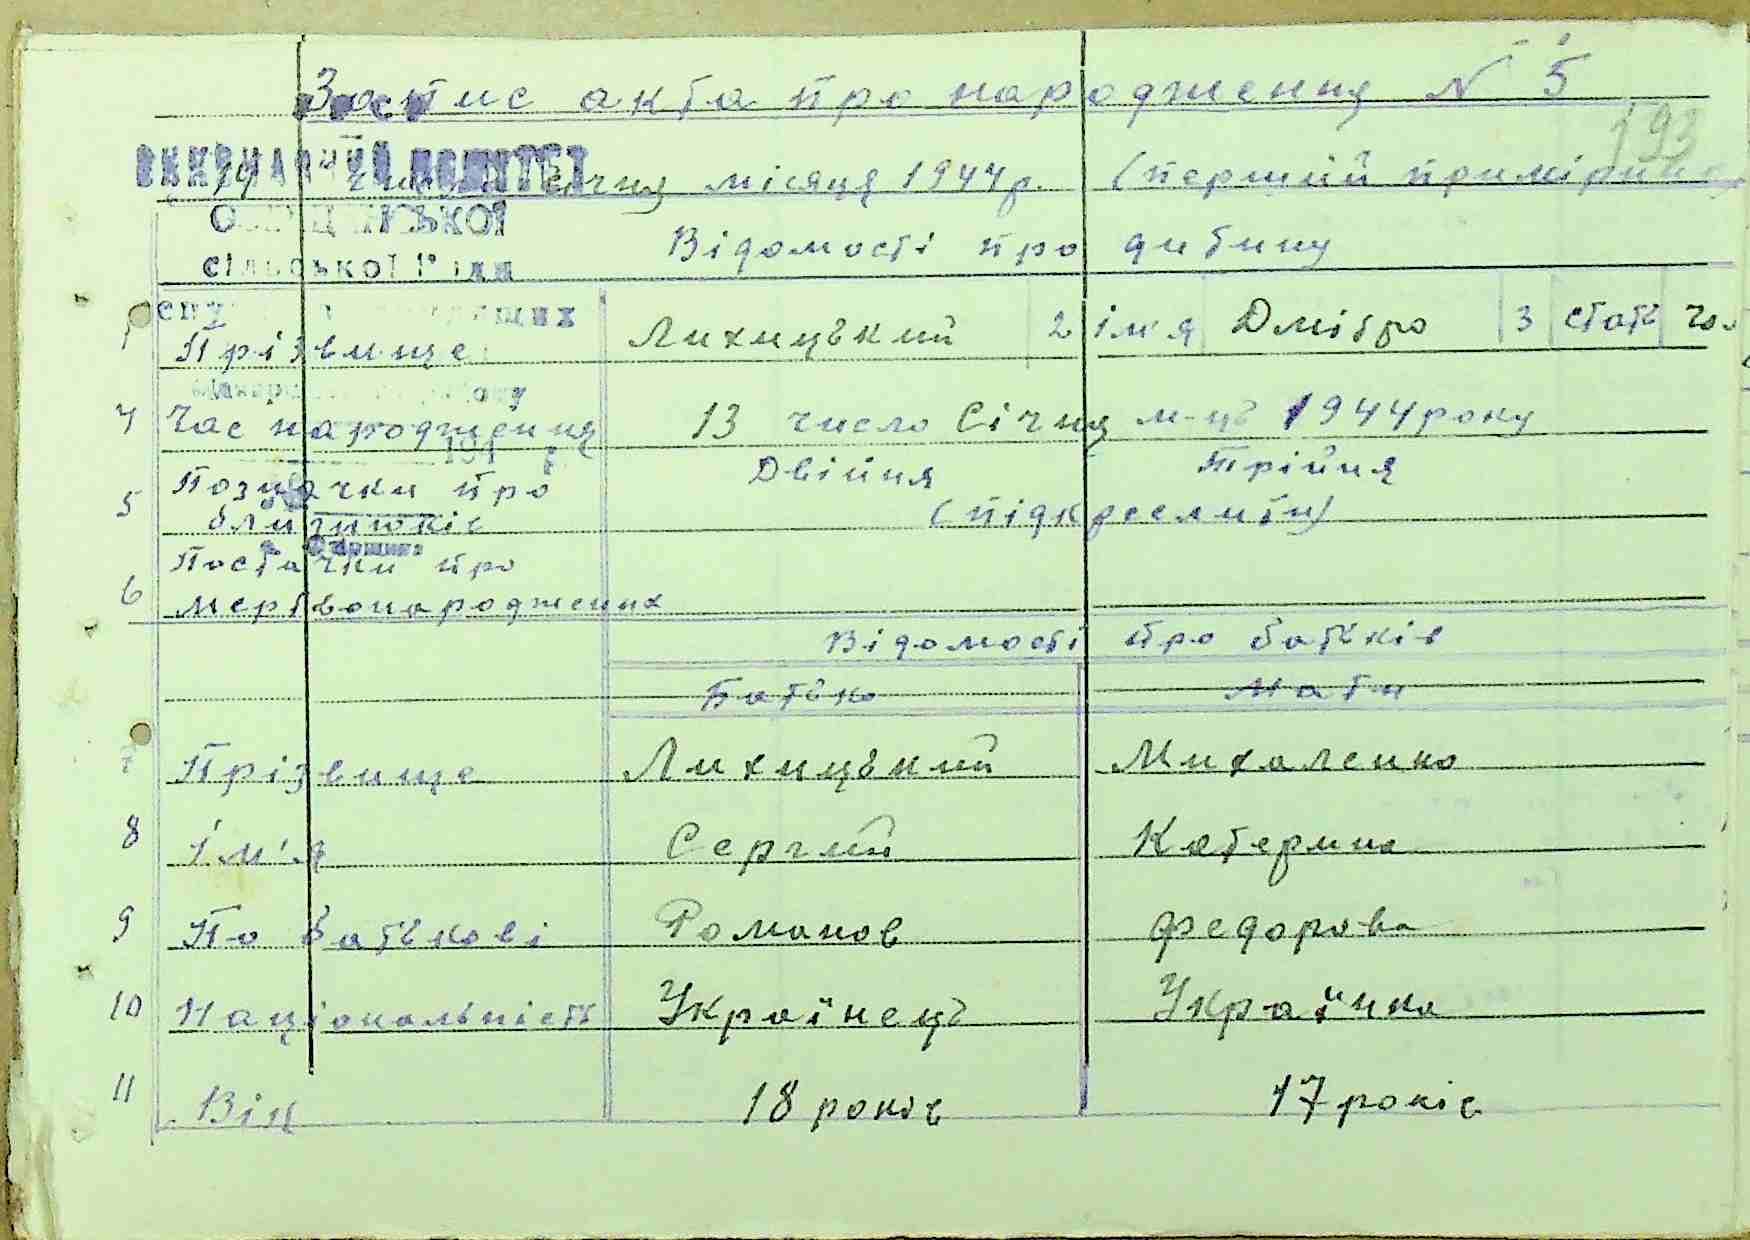 Запис акта про народження № 5
193
ВИКОНАВЧИЙ КОМІТЕТ
14 числа січня місяця 1944 р. (перший примірник)
СІЛЬСЬКОЇ РАДИ
Відомості про дитину
1 Прізвище Лихицький 2 ім'я Дмітро 3 стать чол
4 Час народження 13 число Січня м-ць 1944 року
194
5 Позначки про Двійня Трійня
близнюків (підкреслити)
6 Постачки про
мертвонароджених
Відомості про батьків
Батько Мати
7 Прізвище Лихицький Михаленко
8 Ім'я Сергий Катерина
9 По батькові Романов Федорова
10 Національність Українець Українка
11 Вік 18 років 17 років